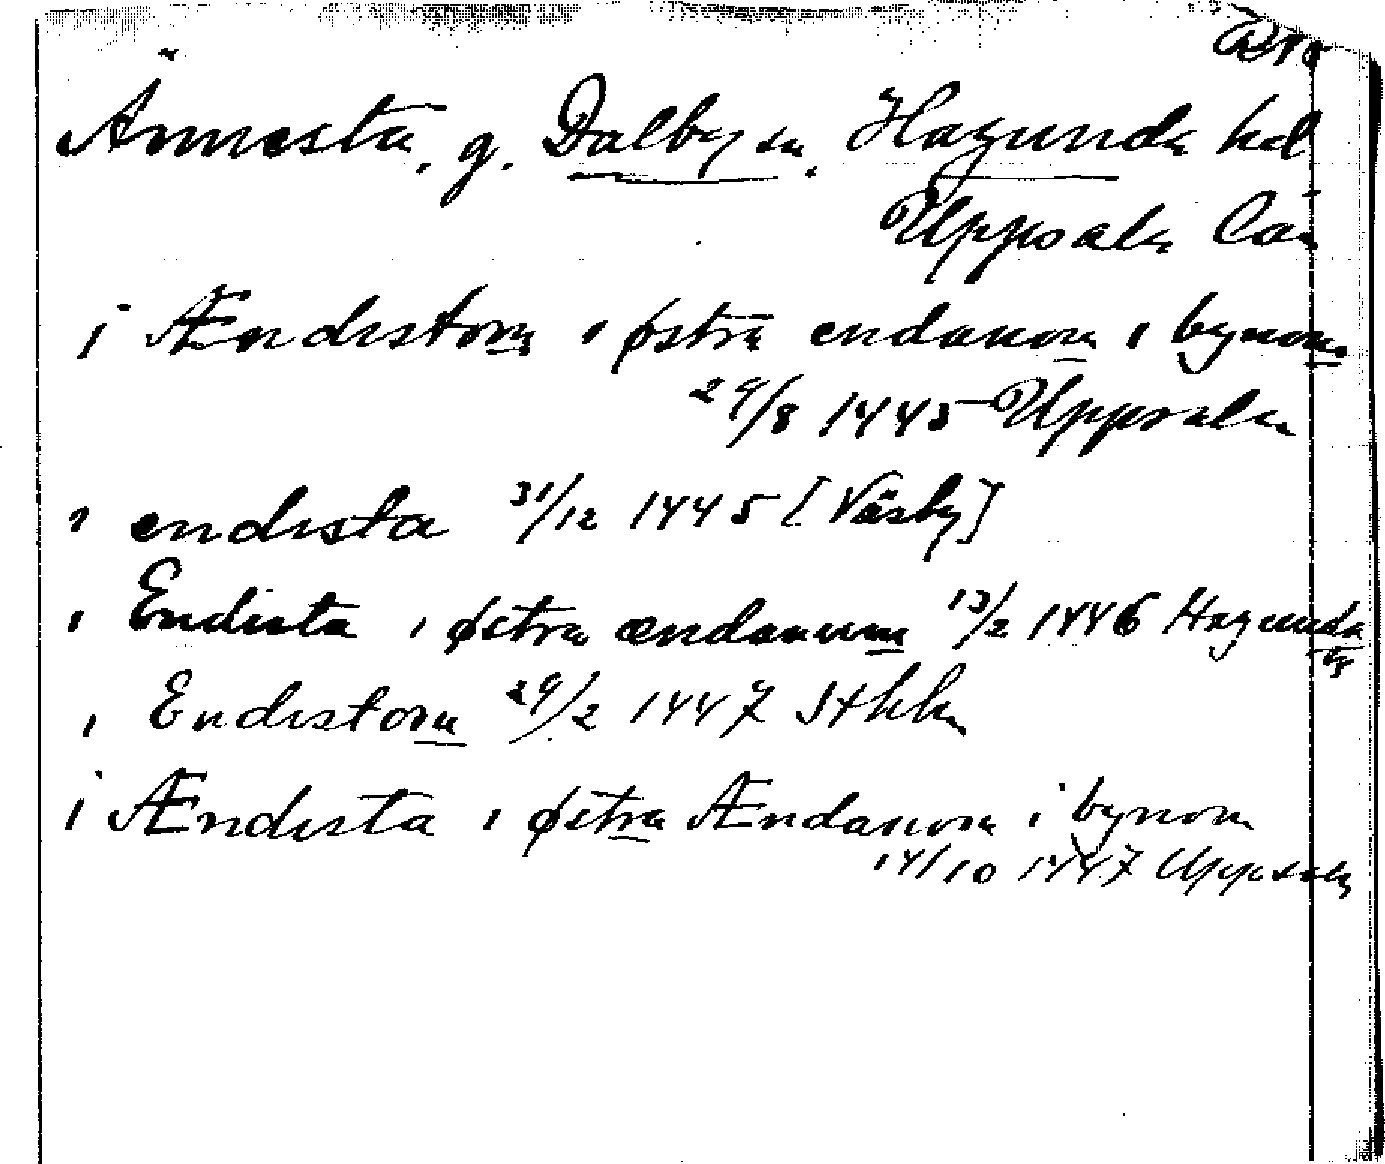 Ännesta, g. Dalby sn. Hagunda hd
Uppsala län
i Ændistom i østra endanom i bynom
29/8 1445 Uppsala
i endista 31/12 1445 [Väsby]
i Endista i østra ændanum 13/2 1446 Hagunda
i Endistom 29/2 1447 Sthlm
i Ændista i østra Ændanom i bynom
14/10 1447 Uppsala